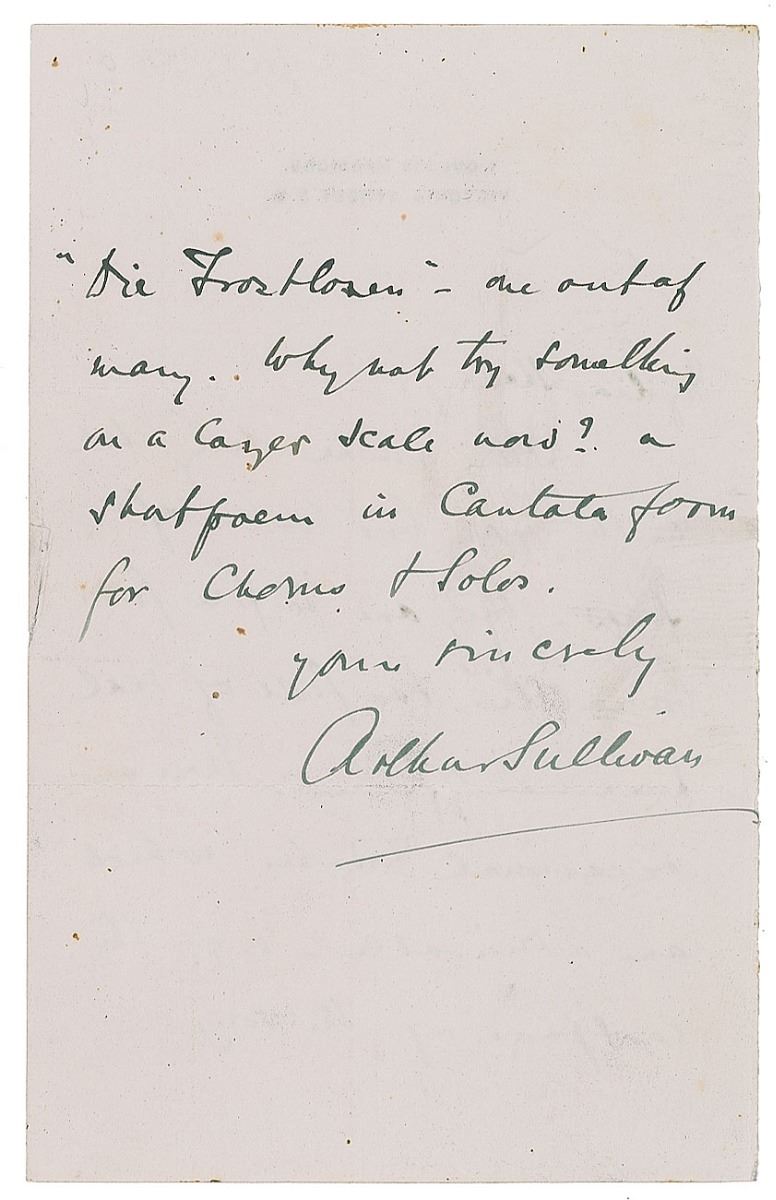 "Die Trostlosen" – one out of
many. Why not try something
on a larger scale now? a
short poem in Cantata form
for Chorus & Solos.
yours sincerely
Arthur Sullivan